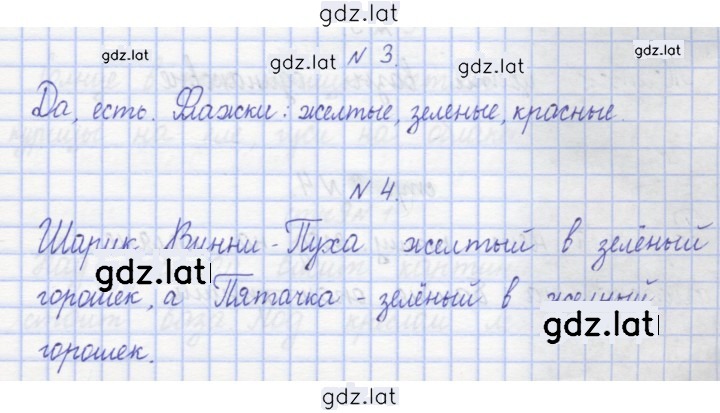 gdz.lat
gdz.lat
gdz.lat
gdz.lat
N 3.
Да, есть. Флажки: желтые, зеленые, красные.
N 4.
Шарик Винни-Пуха желтый в зелёный
gdz.lat
горошек, а Пятачка - зелёный в
gdz.lat
горошек.
gdz.lat